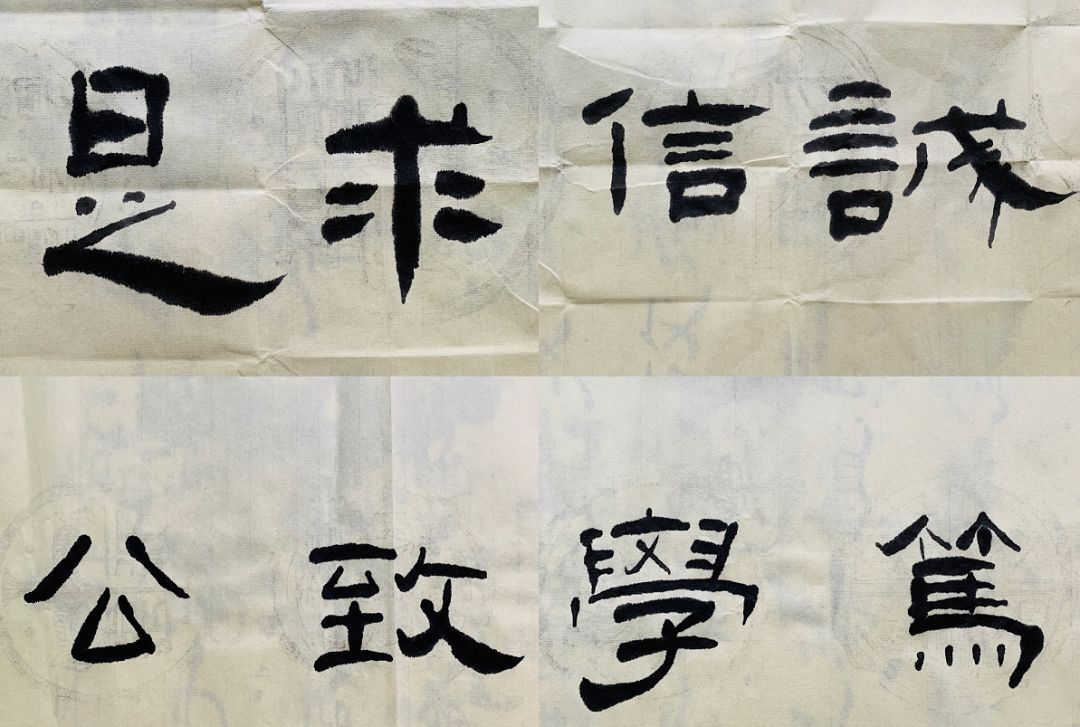 求是
誠信
致公
篤學